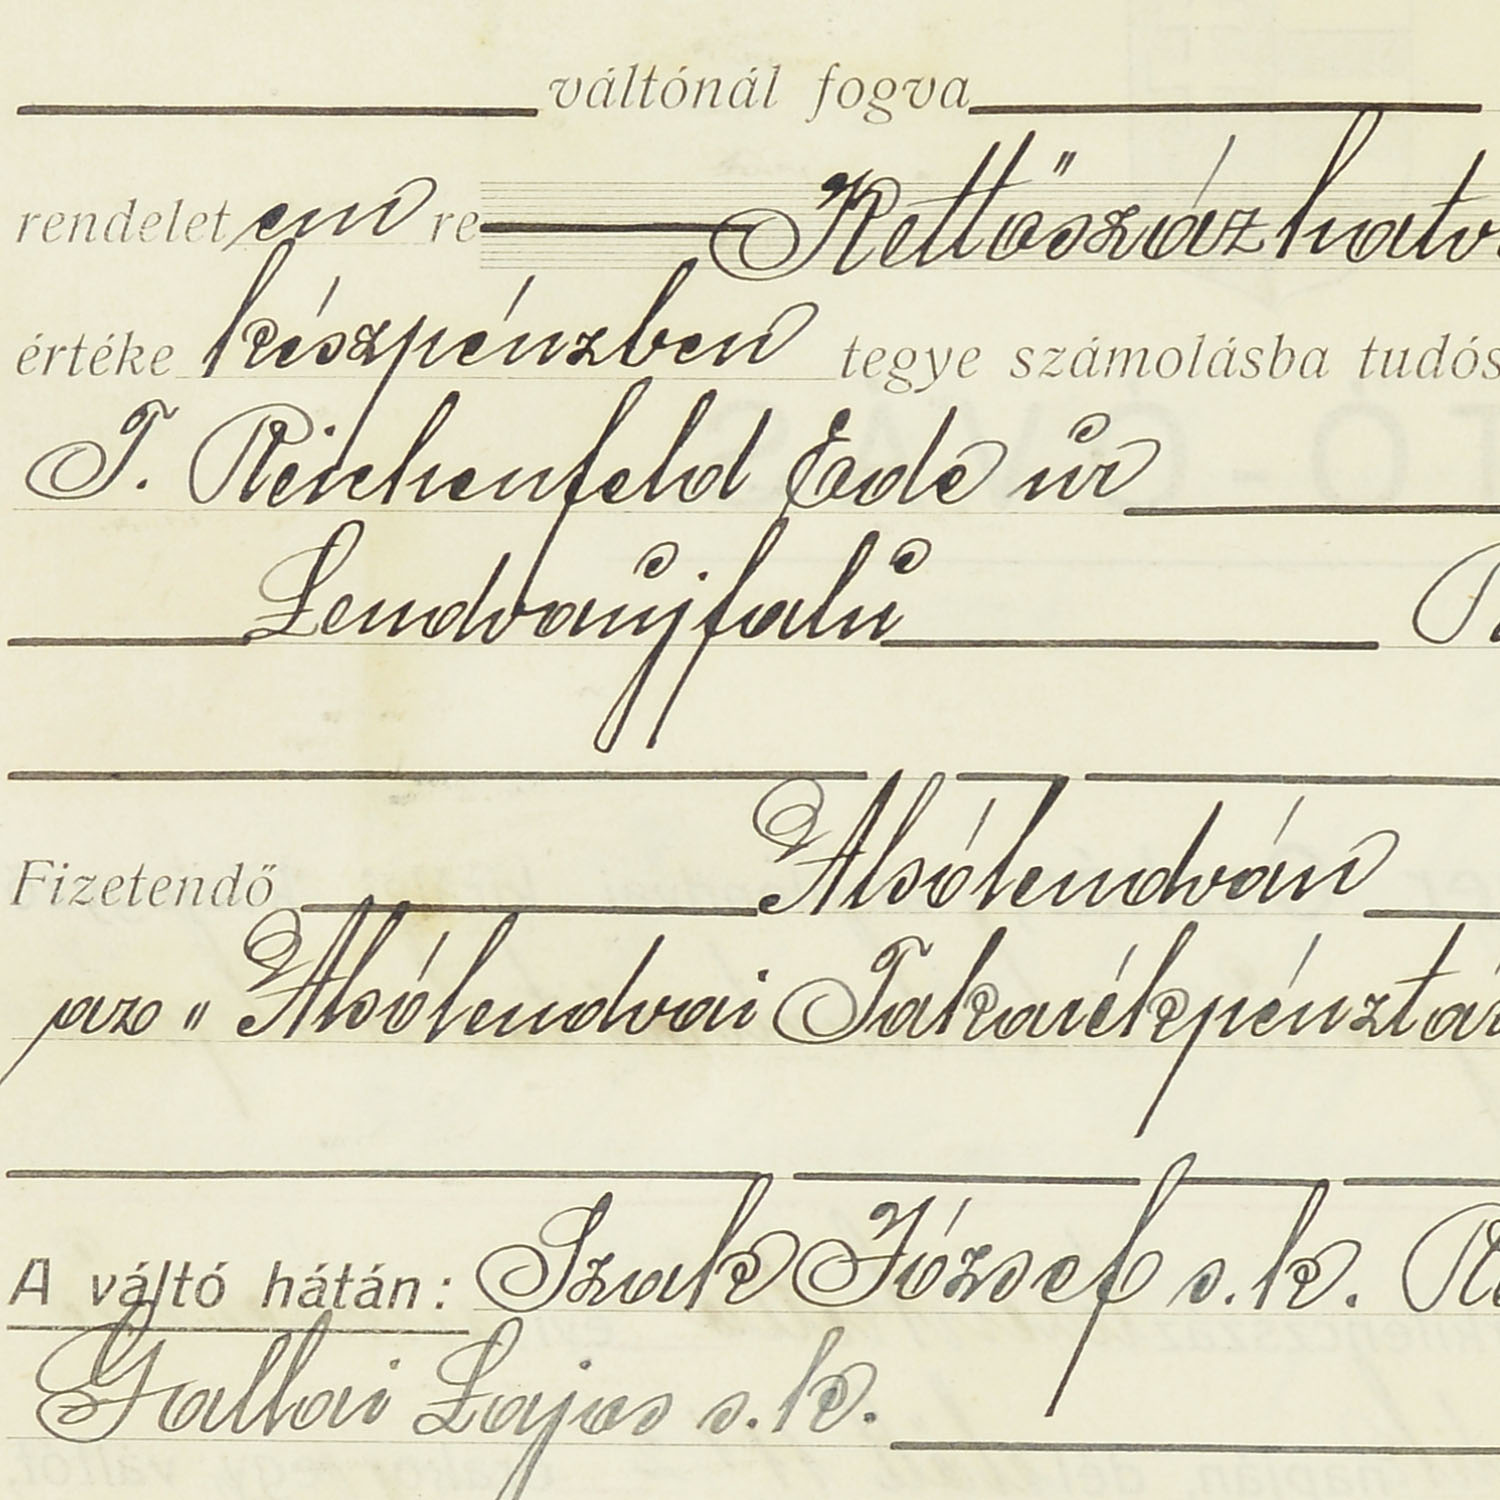 váltónál fogva
rendelet em re Kettőszáz
értéke készpénzben tegye számolásba
T. Reichenfeld Ede úr
Lendvaújfalu
Fizetendő Alsólendván
az " Alsólendvai
A váltó hátán: Szak József s. k.
Gallai Lajos s. k.